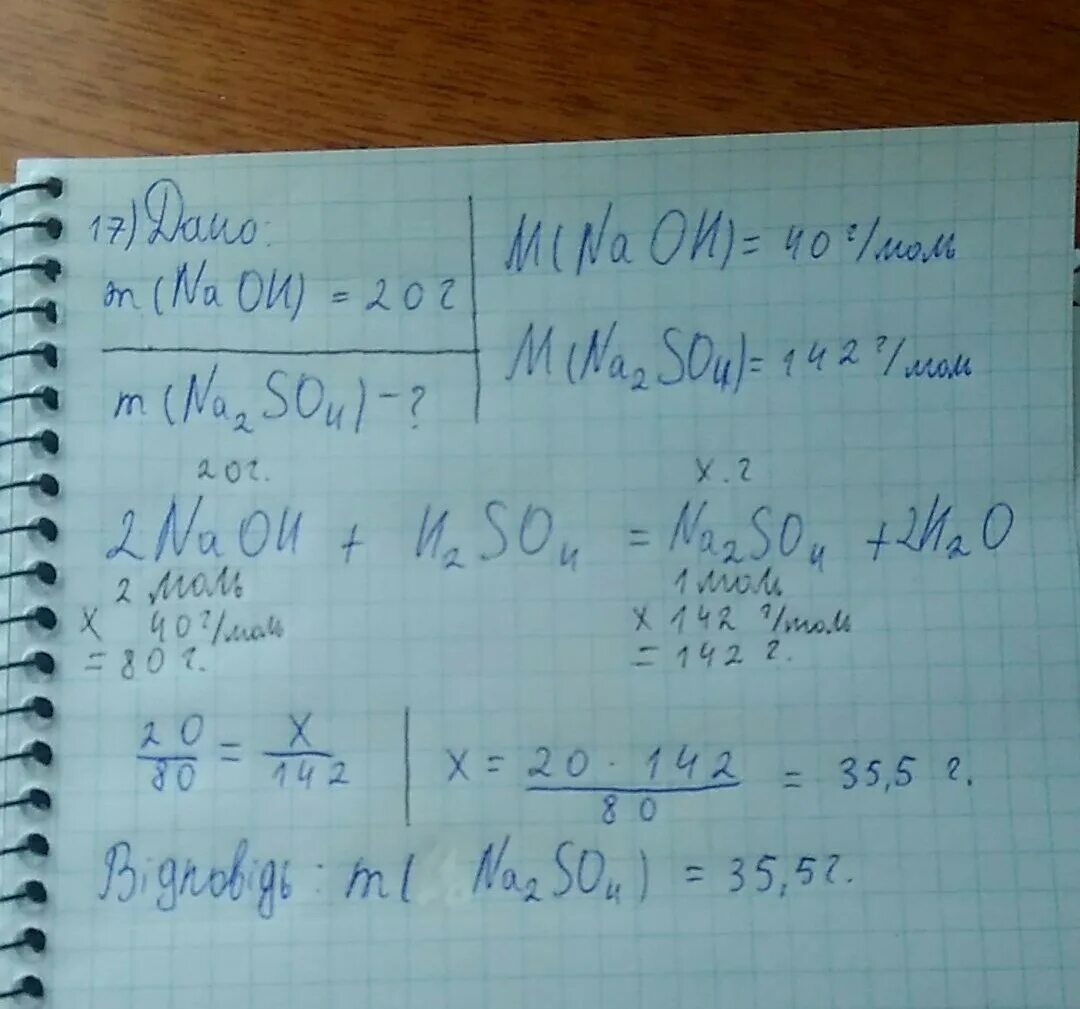 17) Дано:
m(NaOH) = 20г
m(Na₂SO₄) - ?
M(NaOH) = 40 г/моль
M(Na₂SO₄) = 142 г/моль
20г. x. г
2NaOH + H₂SO₄ = Na₂SO₄ + 2H₂O
2 моль 1 моль
x 40 г/моль x 142 г/моль
= 80 г. = 142 г.
20/80 = x/142 | x = (20 · 142)/80 = 35,5 г.
Відповідь: m( Na₂SO₄) = 35,5г.